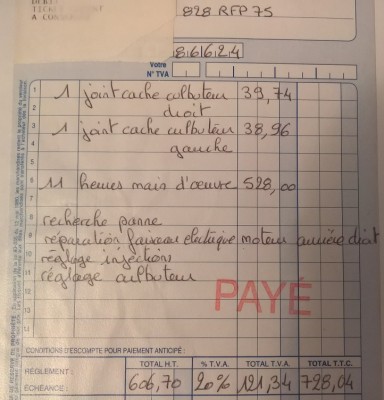 828 RFP 75
8 6 6 2 4
Votre
N° TVA
1 1 joint cache culbuteur 39,74
2 droit
3 1 joint cache culbuteur 38,96
4 gauche
5
6 11 heures main d'oeuvre 528,00
7
8 recherche panne
9 réparation faiseau electrique moteur arrière droit
10 réglage injections
11 réglage culbuteur
12 PAYÉ
13
CONDITIONS D'ESCOMPTE POUR PAIEMENT ANTICIPÉ :
TOTAL H.T. % T.V.A. TOTAL T.V.A. TOTAL T.T.C.
RÈGLEMENT :
ÉCHÉANCE : 606,70 20% 121,34 728,04